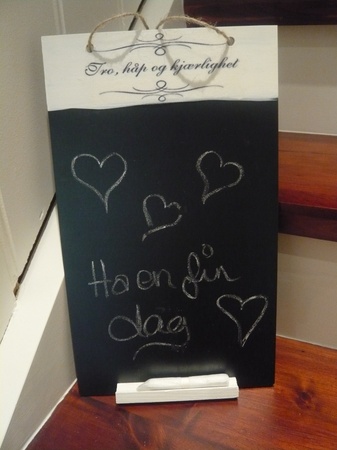 Tro, håp og kjærlighet
Ha en fin
dag